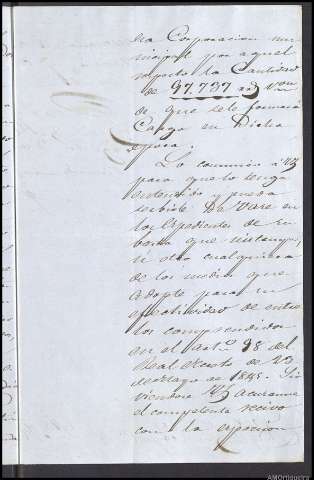 dha Corporacion mu-
nicipal por aquel
respecto la Cantidad
de 97.797 r.s v.on
de que se le formará
Cargo en Dicha
época.
Lo comunico á V.S.
para que lo tenga
entendido y pueda
servirle De Vase en
los Espedientes de su
basta que instanya,
ú otro cualquiera
de los medios que
adopte para su
efectividad de entre
los comprendidos
en el Art.o 98 del
Real Decreto de 23
de Mayo de 1845. Sir
viendose V.S. acusarme
el competente recivo
con la espresion
AMOrtigueira